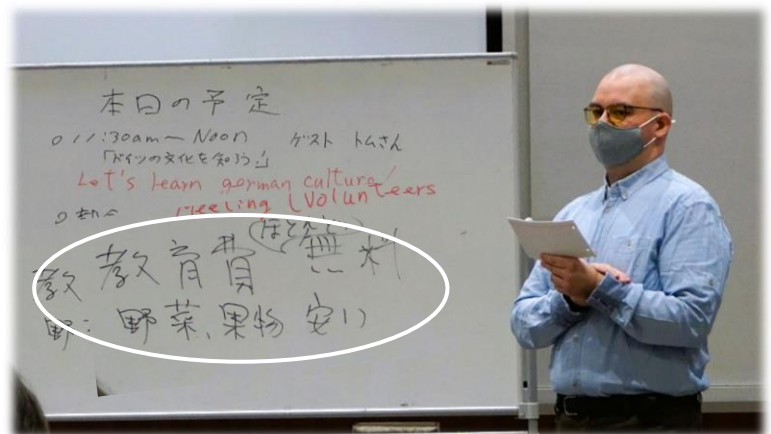 本日の予定
○11:30am~Noon ゲスト トムさん
「ドイツの文化を知ろう!」
Let's learn german culture!
Meeling (Volunteers
(ほとんど)
教 教育費 無料
野: 野菜、果物 安い